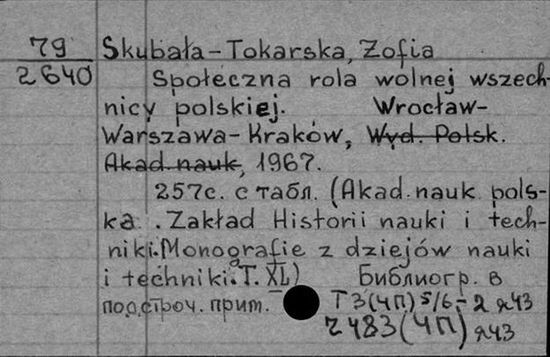 79
2640
Skubała-Tokarska, Zofia
Społeczna rola wolnej wszech-
nicy polskiej. Wrocław-
Warszawa-Kraków, Wyd. Polsk.
Akad. nauk, 1967.
257с. с табл. (Akad. nauk pols-
ka. Zakład Historii nauki i tech-
niki. Monografie z dziejów nauki
i techniki. T. XL) Библиогр. в
подстроч. прим. Т3(4П)5/6-2 я43
Ч483(4П) я43